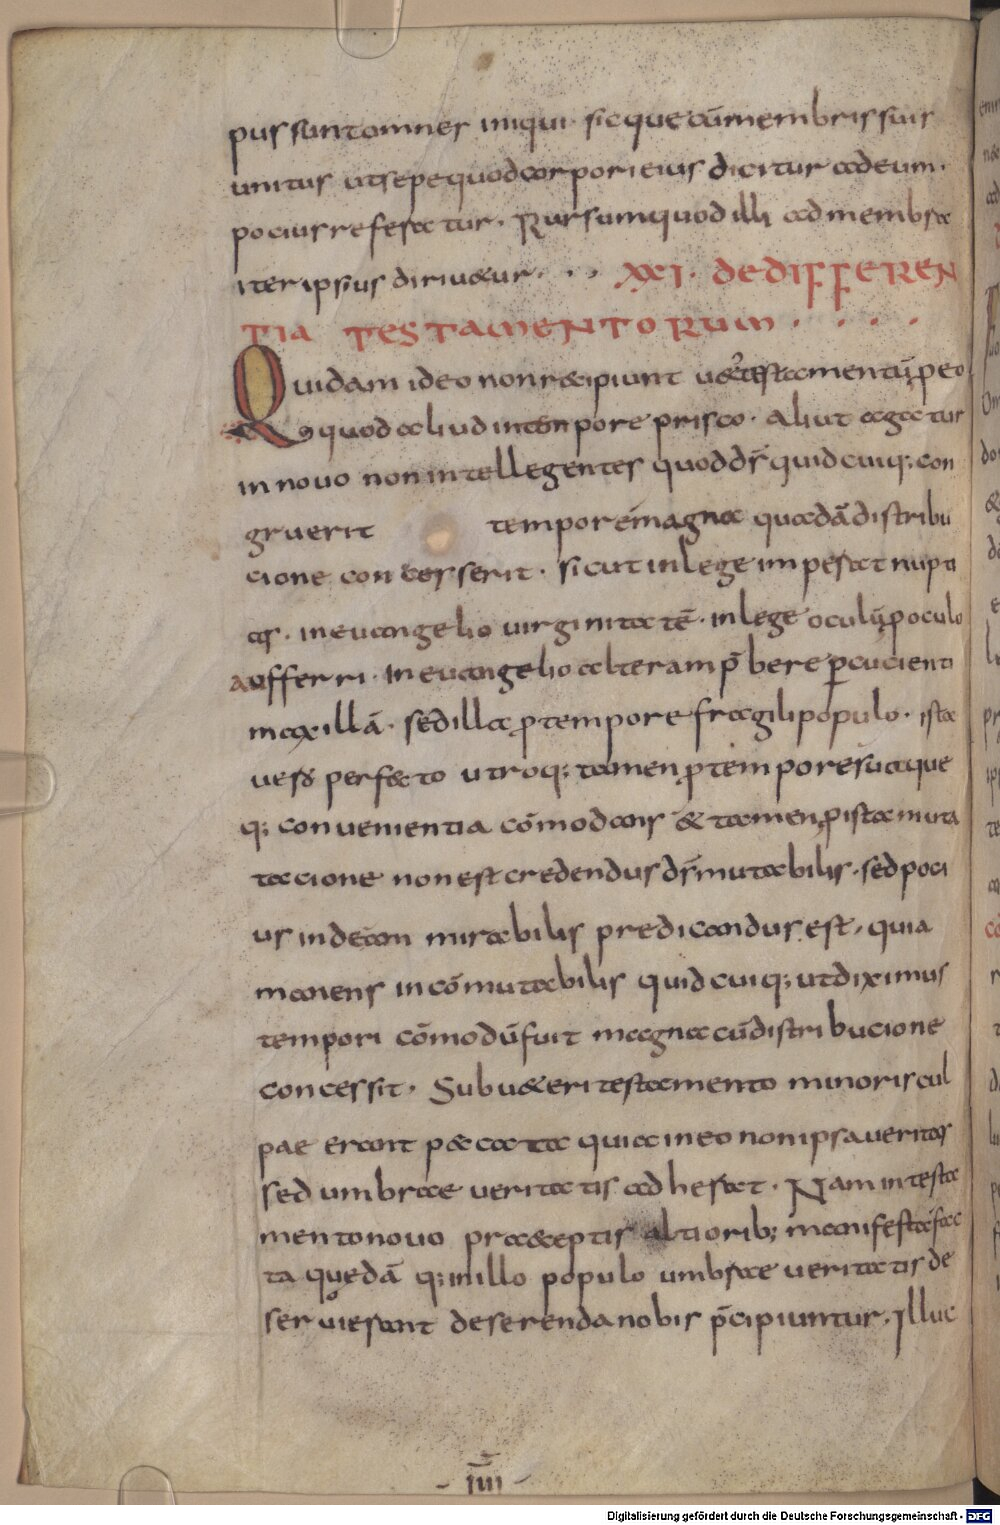 pus sunt omnes iniqui. sicque cū membris suis
unitus ut sepe quod corpori eius dicitur ad eum.
pocius referatur. Rursum quod illi ad membra
iter ipsius dirivetur. . . XXI. DE DIFFEREN
TIA TESTAMENTORUM . . . .
Quidam ideo non recipiunt uetꝰ testamentū, p eo
quod aliud in tempore prisco. aliut agatur
in nouo non intellegentes quod dr̄ quid cuiq; con
gruerit tempore magna quadā distribu
cione con serit. sicut in lege imperat nupti
as. in euangelio uirginitatē. in lege oculū p oculo
aufferri. in euangelio alteram p̄bere percucienti
maxillā. sed illa p tempore fragili populo. ista
uero perfecto utroq; tamen p tempore sua que
q; conuenientia cōmodans & tamen p ista muta
tacione non est credendus dr̄ mutabilis. sed poci
us inde tam mirabilis predicandus est. quia
manens incōmutabilis quid cuiq; ut diximus
tempori cōmodū fuit magna cū distribucione
concessit. Sub ueteri testamento minoris cul
pae erant peccata quia in eo non ipsa ueritas
sed umbrae ueritatis adherat. Nam in testa
mento nouo praeceptis altiorib; manifesta fac
ta quedā q; in illo populo umbrae ueritatis de
seruierant deserenda nobis p̄cipiuntur. Illuc
IIII
Digitalisierung gefördert durch die Deutsche Forschungsgemeinschaft - DFG